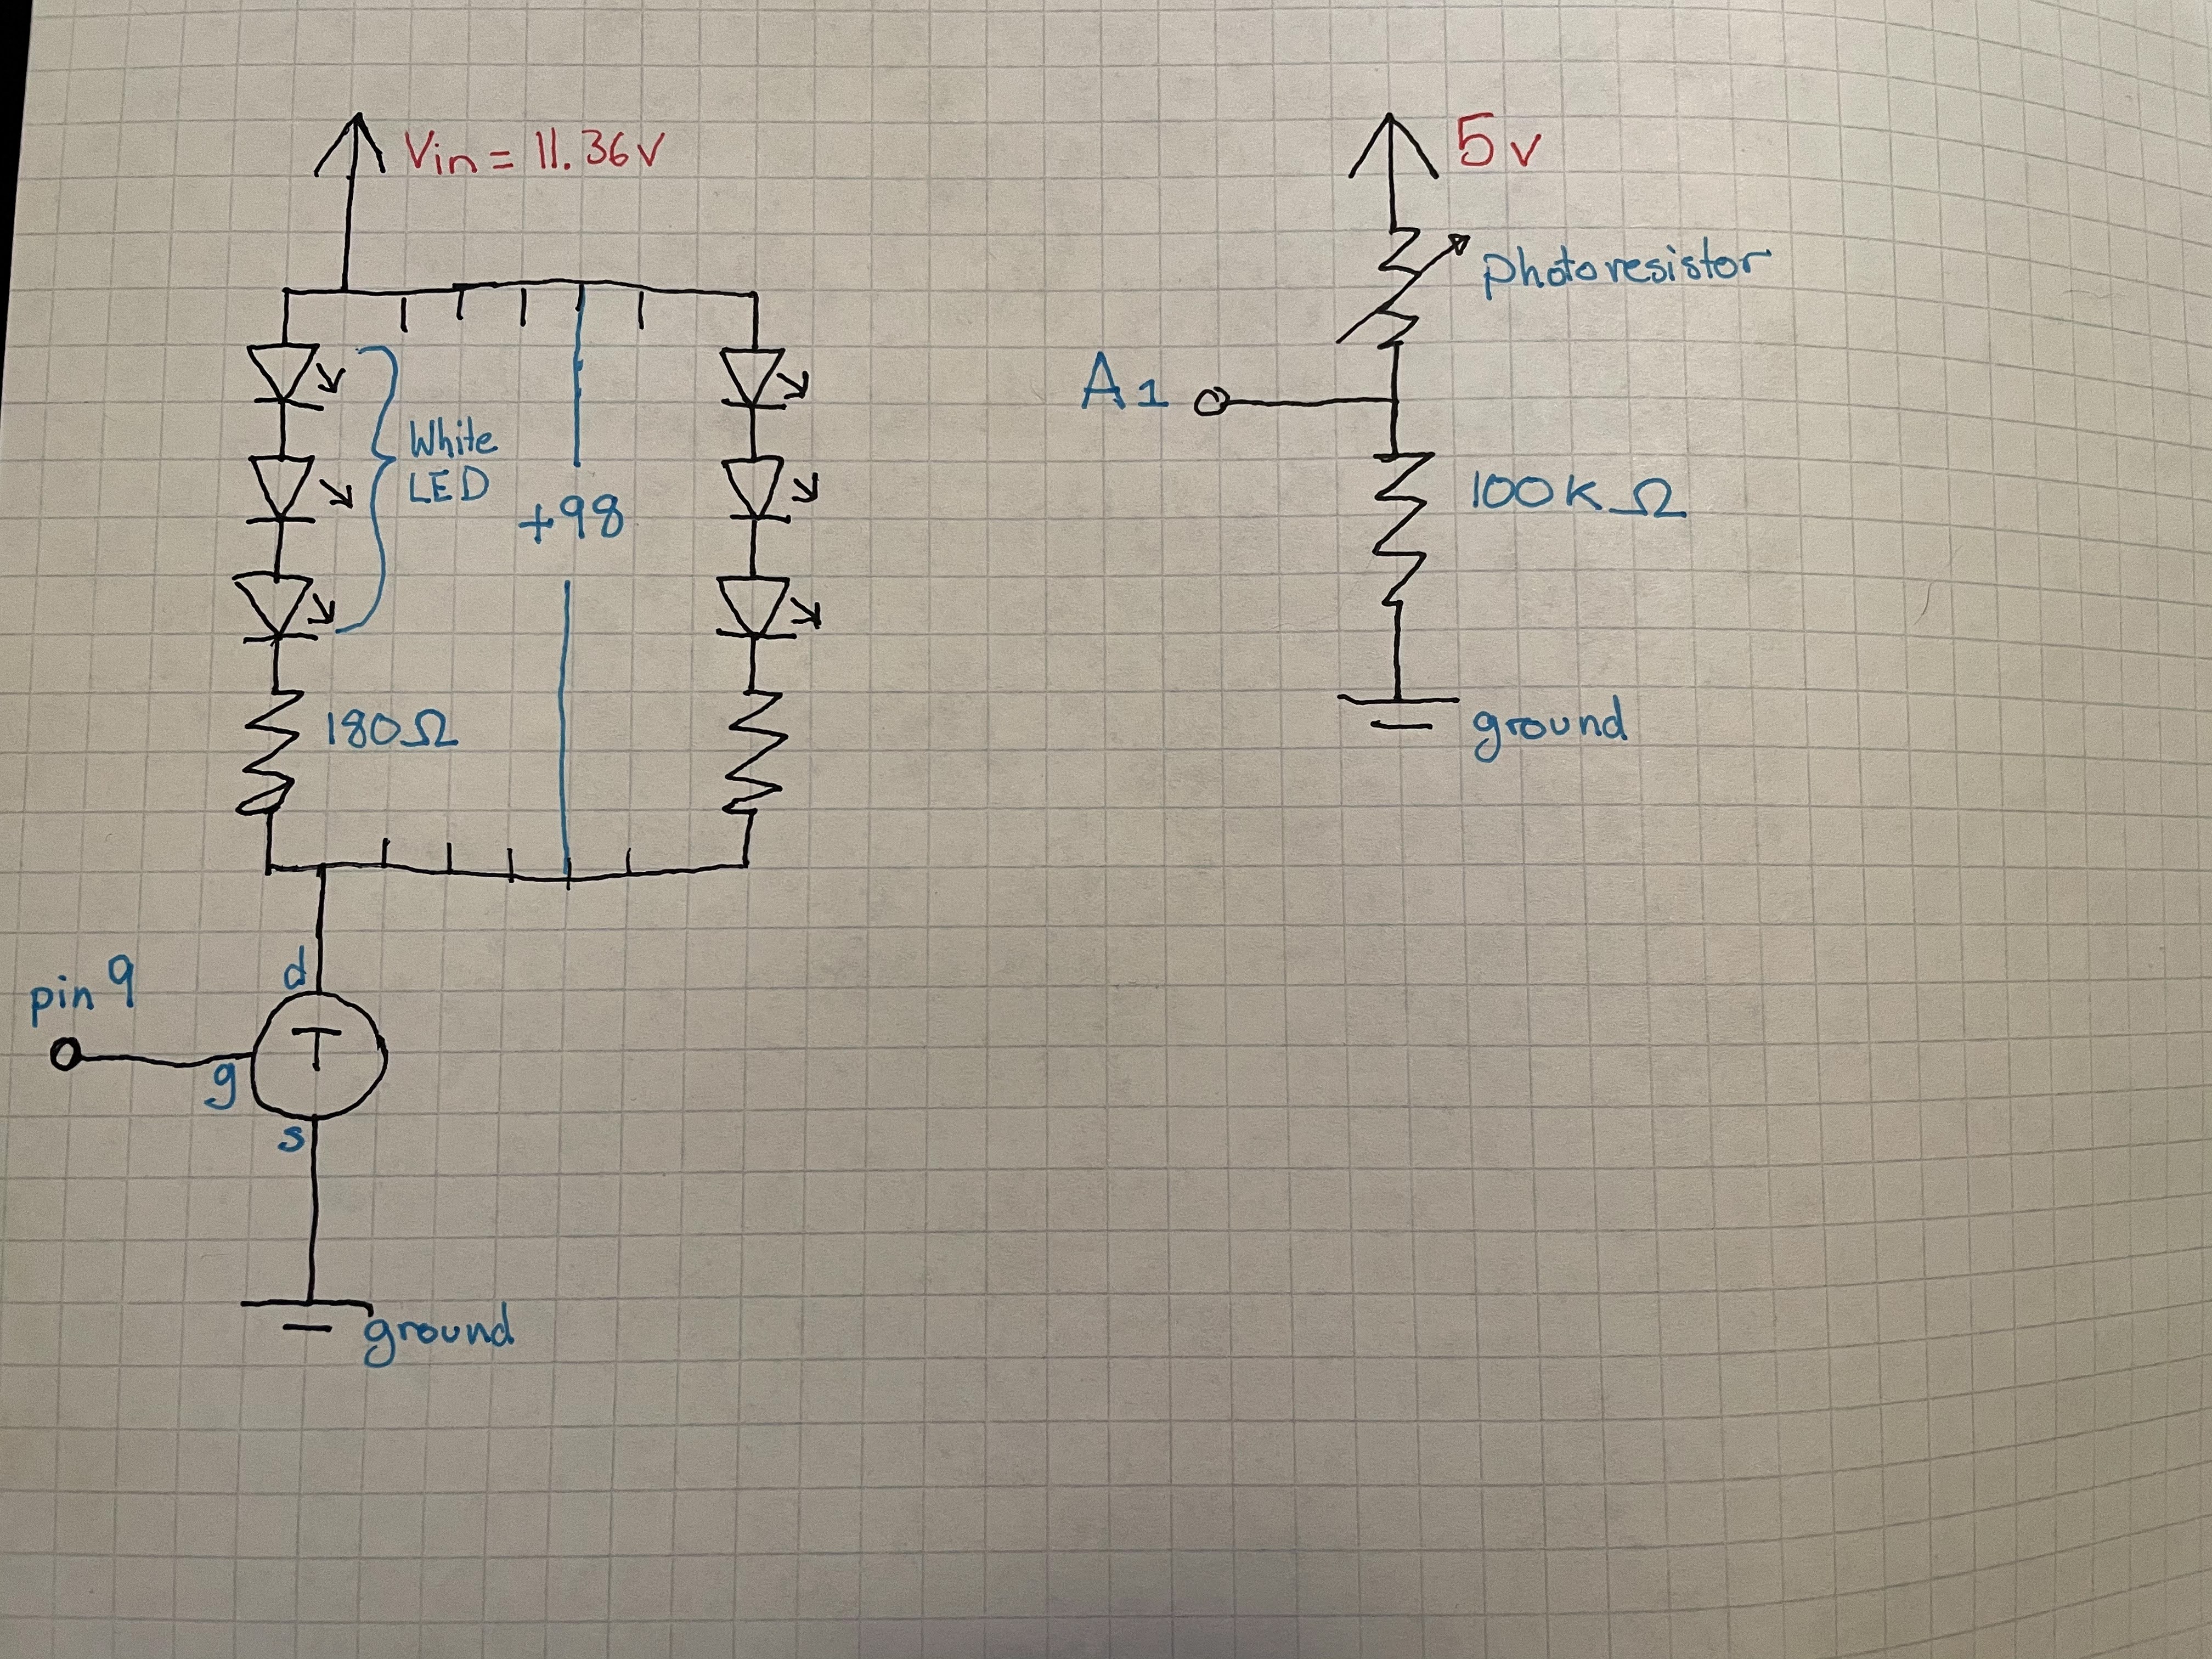 Vin = 11.36V
White
LED
+98
180Ω
pin 9
d
T
g
s
ground
5v
photoresistor
A1
100KΩ
ground